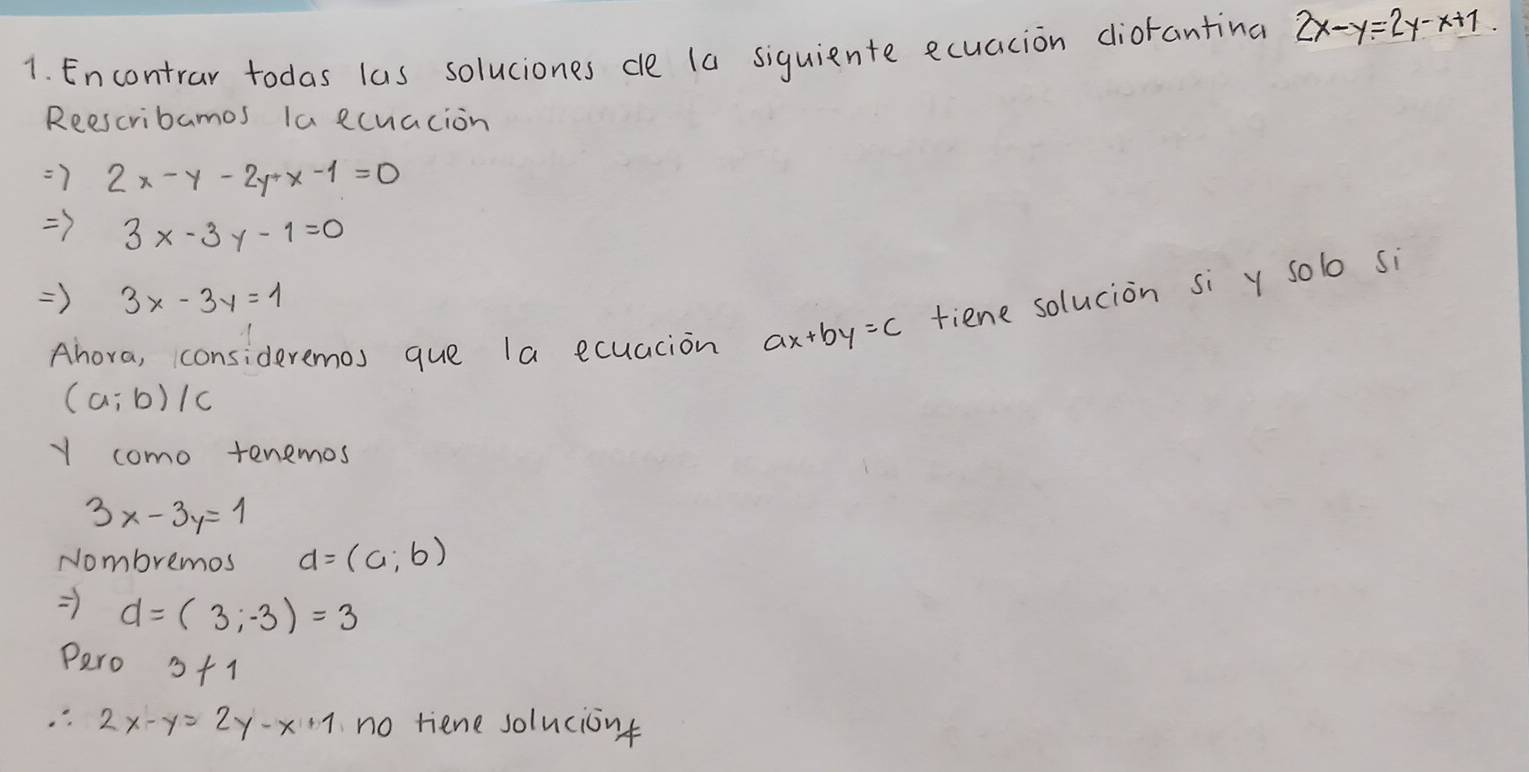 1. Encontrar todas las soluciones de la siguiente ecuación diofantina 2x-y=2y-x+1.
Reescribamos la ecuación
=> 2x-y-2y+x-1=0
=> 3x-3y-1=0
=> 3x-3y=1
Ahora, consideremos que la ecuación ax+by=c tiene solución si y solo si
(a;b)/c
Y como tenemos
3x-3y=1
Nombremos d=(a;b)
=> d=(3;-3)=3
Pero 3∤1
∴ 2x-y=2y-x+1 no tiene solución